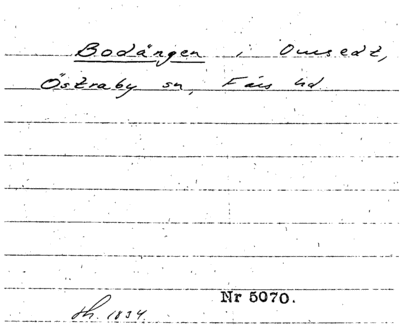 Bodängen i Onsedt,
Östraby sn, Färs hd
Nr 5070.
sh. 1834.